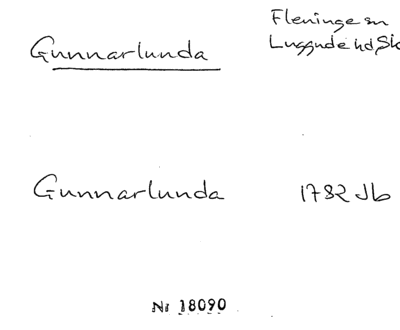 Fleninge sn
Gunnarlunda
Luggude hd Sk
Gunnarlunda 1782 Jb
Nr 18090